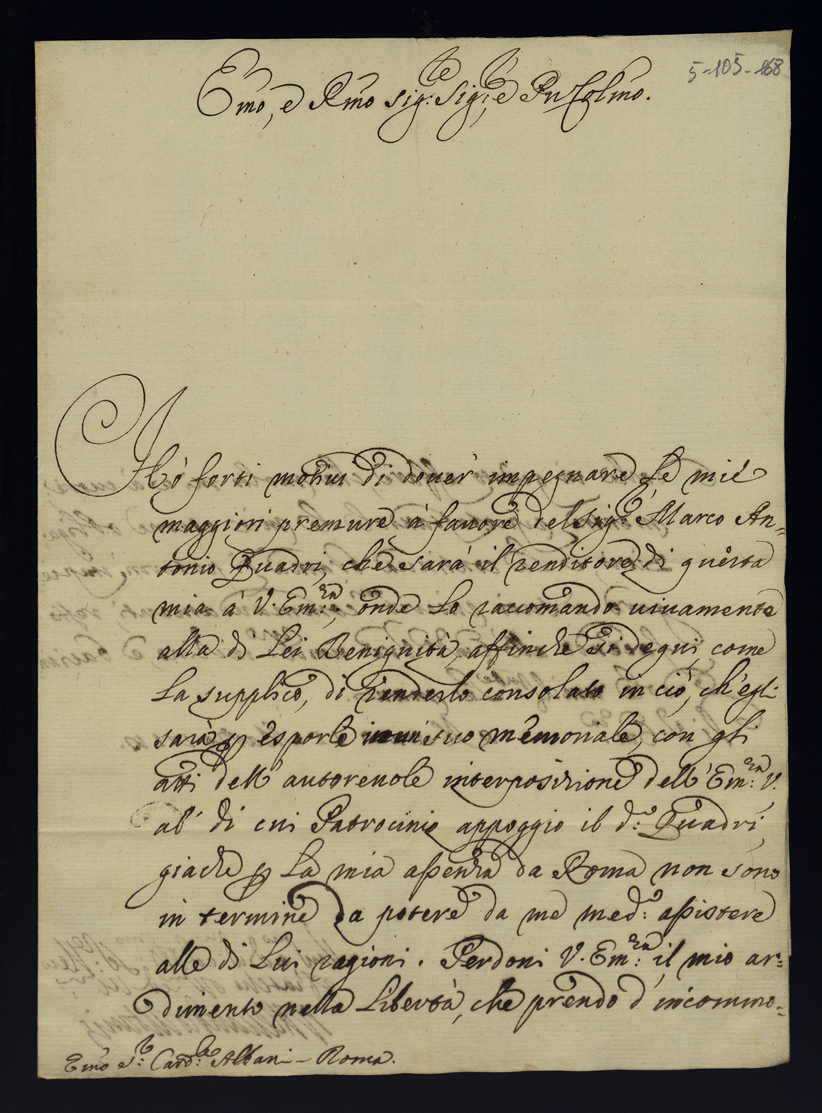 5-105-168
Emo, e Rmo Sig:te Sig:r, e Pn Colmo.
Hó forti motivi di dover' impegnare le mie
maggiori premure á favore del Sig:r Marco An=
tonio Quadri, che sará il renditore di questa
mia á V. Em:za, onde lo raccomando vivamente
alla di Lei Benignità, affinche si degni come
La supplico, di renderlo consolato in ció, ch'egli
sará p esporle in un suo memoriale, con gli
atti dell' autorevole interposizione dell' Em:za V.
al' di cui Patrocinio appoggio il d:o Quadri,
giache p La mia assenza da Roma non sono
in termine da potere da me med:o assistere
alle di Lui ragioni. Perdoni V. Em:za il mio ar=
dimento nella Libertà, che prendo d'incommo=
Emo S:r Card:le Albani – Roma.